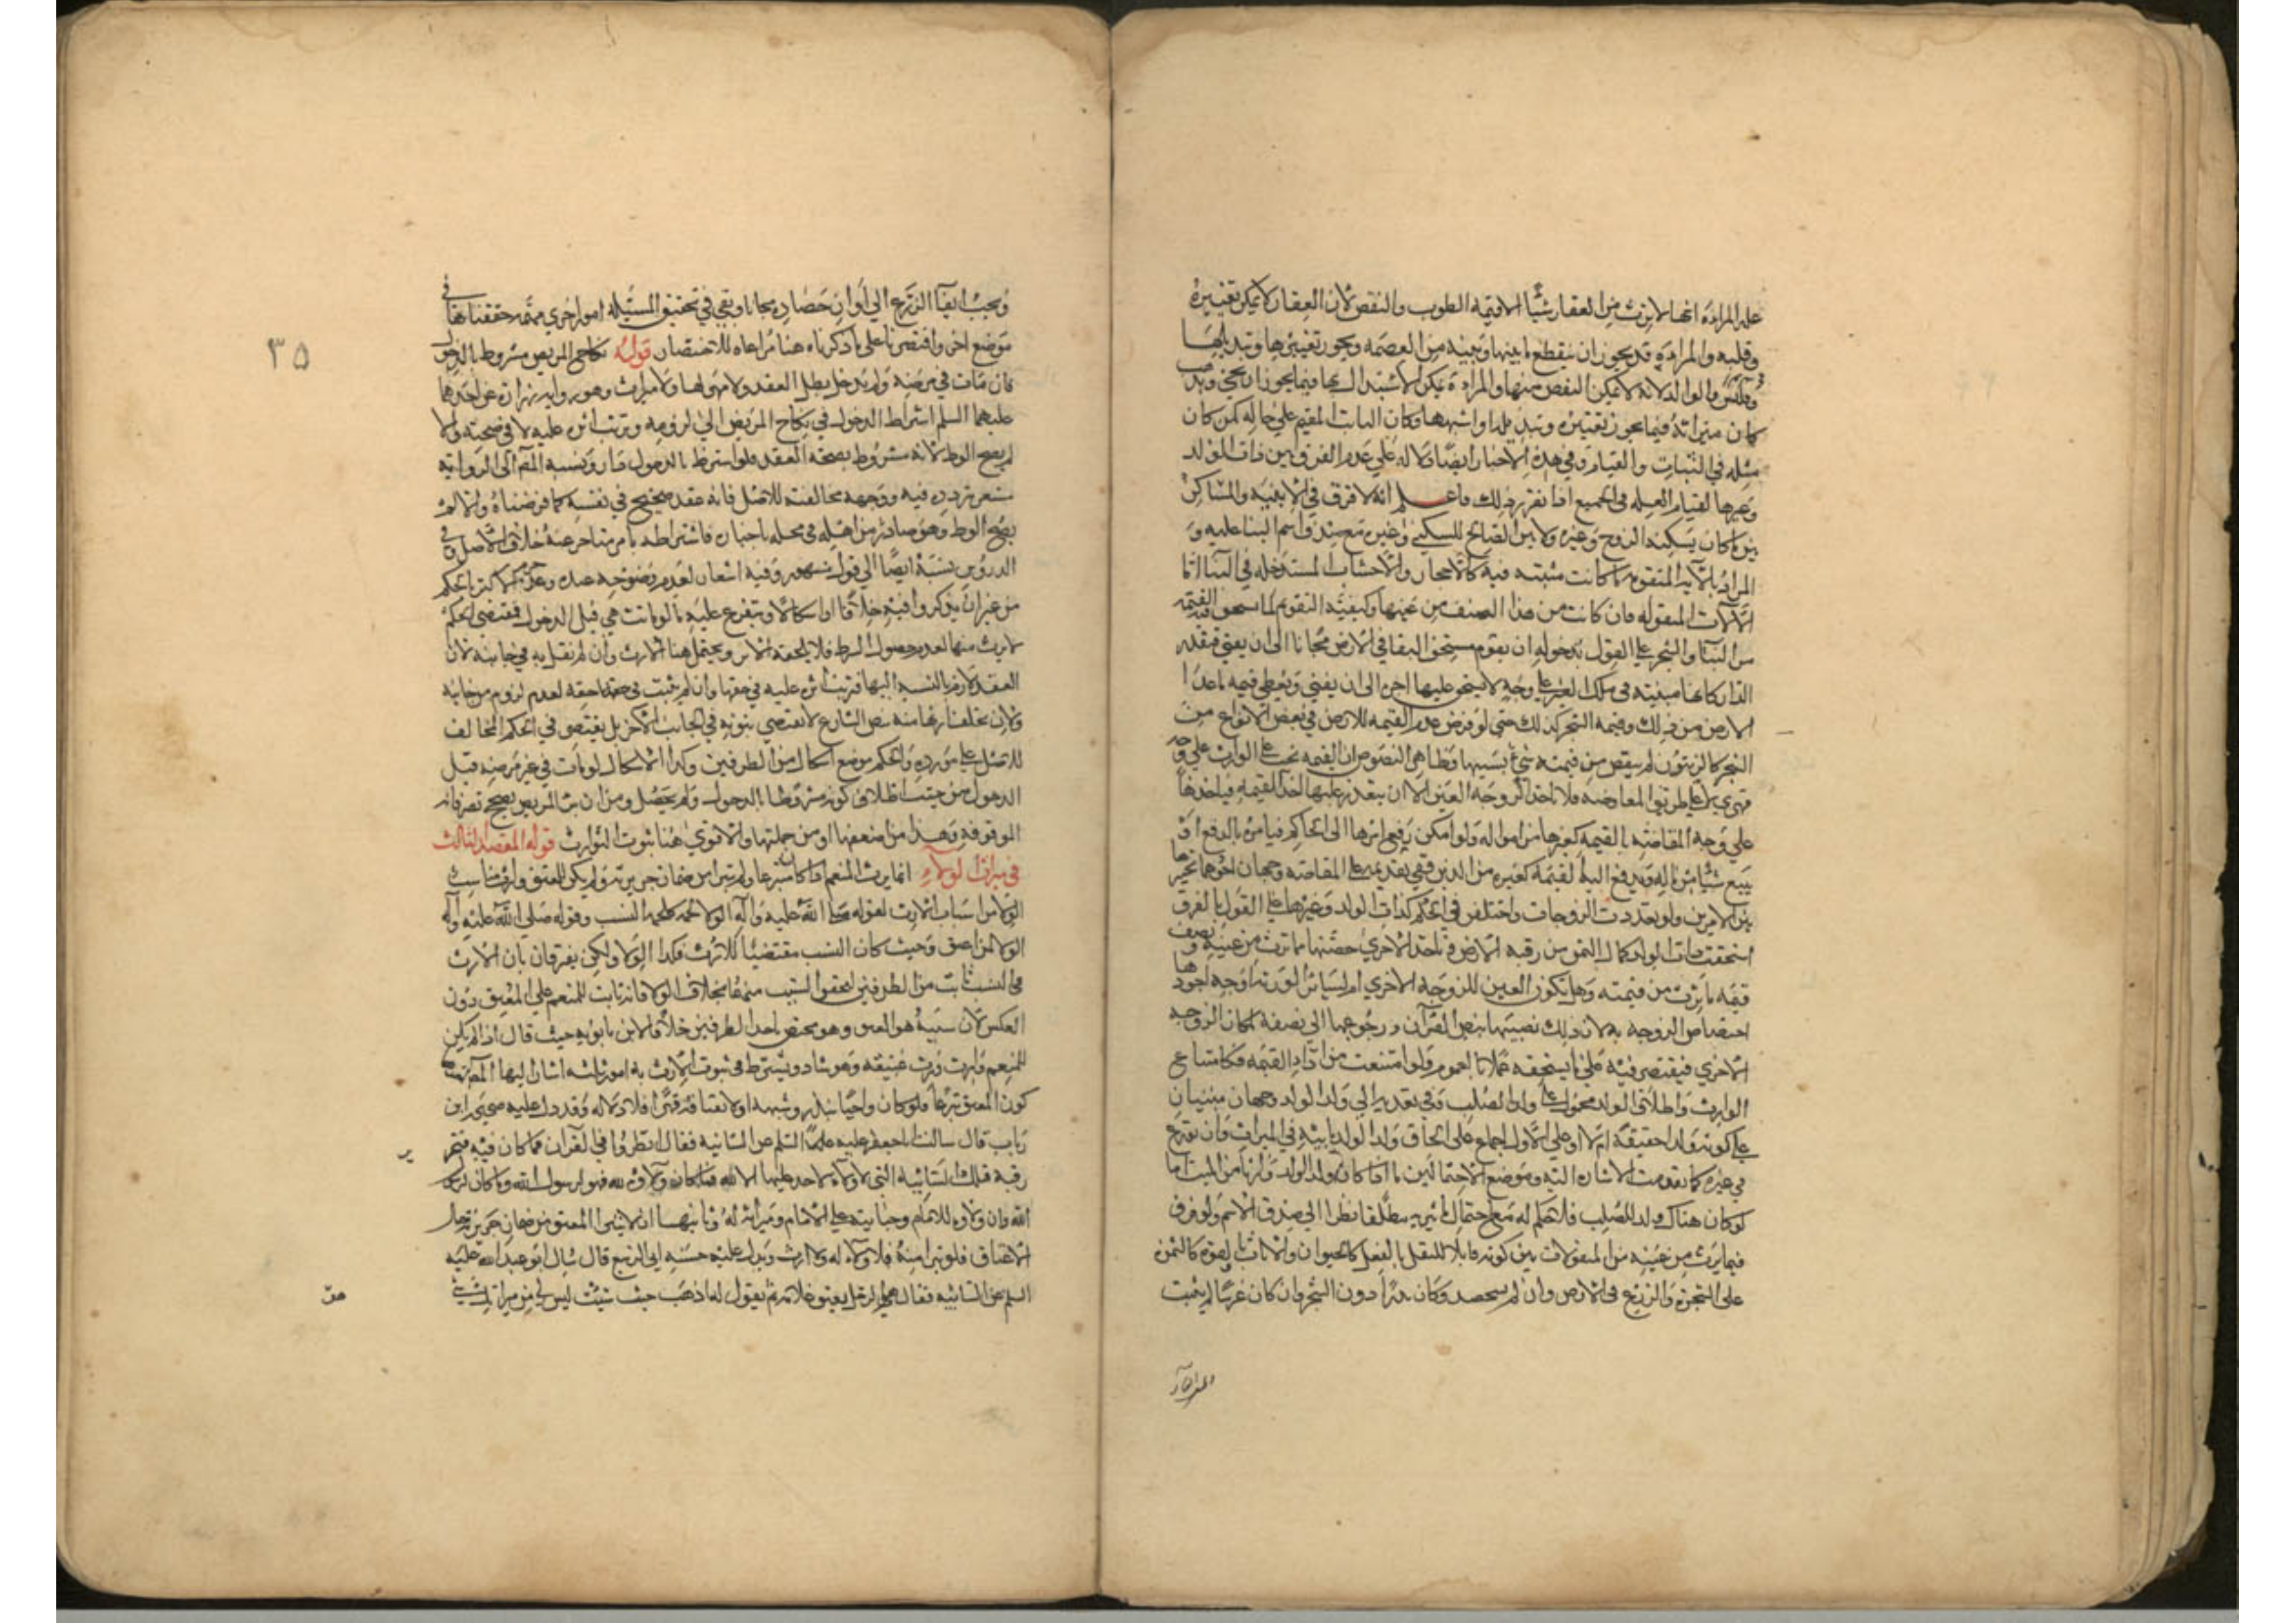 عليه المراءة انها لا ترث من العقار شيئا الا قيمة الطوب والنقض لان العقار لا يمكن تغييره
وقلبه والمراءة قد يجوز ان ينقطع ما بينها وبينه من العصمة ويجوز تغييرها وتبديلها
وليس والوالد لانه لا يمكن النقص منها والمراءة يمكن الاستبدال بها فيما يجوز ان يجئ ويذهب
كان ميراثه فيما يجوز تغييره وتبديله اذا اشبهها وكان الثابت المقيم على حاله كمن كان
مثله في الثبات والقيام وفي هذه الاخبار ايضا دلاله على عدم الفرق بين ذات الولد
وغيرها لقيام العله في الجميع اذا تقرر ذلك فاعلم انه لا فرق في الابنيه والمساكن
بين ما كان يسكنه الزوج وغيره ولا بين الصالح للسكنى وغيره مع صدق اسم البنا عليه و
المراد بالآلة المتقوم ما كانت مثبته فيه كالاحجار والاخشاب المستدخله في البنا اما
الآلات المنقوله فان كانت من هذا الصنف من عينها وكيفيه التقويم لما يستحق فيه القيمه
من البنا والشجر على القول بدخوله ان يقوم مستحق البقا في الارض مجانا الى ان يفنى فيقدر
الدار كانها مبنيه في ملك الغير على وجه لا يستحق عليها اجره الى ان يفنى ويعطى قيمه ما عدا
الارض من ذلك وقيمه الشجر كذلك حتى لو فرض عدم القيمه للارض في بعض الانواع من
الشجر كالزيتون لم ينقص من قيمته شئ بسببها وظاهر النصوص ان القيمه تجب على الوارث على وجه
قهري لا على طريق المعاوضه فلا تاخذ الزوجه العين الا ان يتعذر عليها اخذ القيمه فياخذها
على وجه المقاصه بالقيمه كغيرها من امواله ولو امكن رفع امرها الى الحاكم فيامره بالدفع او
يبيع شيئا من ماله ويدفع اليها القيمه كغيره من الدين ففي تقديمه على المقاصه وجهان اجودهما تخيرها
بين الامرين ولو تعددت الزوجات واختلفن في الحكم كذات الولد وغيرها على القول بالفرق
استحقت ذات الولد كمال الثمن من رقبه الارض وتاخذ الاخرى حصتها مما ترث من عينه ونصف
قيمه ما ترث من قيمته وهل يكون العين للزوجه الاخرى ام لسائر الورثه اوجه اجودها
اختصاص الزوجه به لان ذلك نصيبها بنص القرآن ورجوعها الى نصفه لمكان الزوجه
الاخرى فيقتصر فيه على ما يستحقه عملا بالعموم ولو امتنعت من اداء القيمه فكامتناع
الوارث واطلاق الولد محمول على ولد الصلب وفي تعديه الى ولد الولد وجهان مبنيان
على كونه ولد احقيقة ام لا وعلى الاول اجماع على الحاق ولد الولد بابيه في الميراث وان تقدم
في غيره كما تقدمت الاشاره اليه وموضع الاحتمالين ما اذا كان ولد الولد وارثا من الميت اما
لو كان هناك ولد للصلب فلا حكم له مع احتمال تاثيره مطلقا نظرا الى صدق الاسم ولو فرق
فيما يرث من عينه من المنقولات بين كونه قابلا للنقل بالفعل كالحيوان والاثاث او بالقوه كالثمره
على الشجره والزرع في الارض وان لم يستحصد وكان بذرا دون الشجر وان كان غرسا لم يثبت
ويجب ابقاء الزرع الى اوان حصاده مجانا وبقي في تحقيق المسئله امور اخرى مهمه حققناها في
موضع اخر واقتصرنا على ما ذكرناه هنا مراعاه للاختصار قوله نكاح المريض مشروط بالدخول
فان مات في مرضه ولم يدخل بطل العقد ولا مهر لها ولا ميراث وهو روايه زراره عن احدهما
عليهما السلم اشتراط الدخول في نكاح المريض الى لزومه وترتب اثره عليه لا في صحته والا
لم يصح الوطء لانه مشروط بصحة العقد فلو اشترط بالدخول دار ونسبه المصم الى الروايه
مشعر بتردده فيه ووجهه مخالفته للاصل فانه عقد صحيح في نفسه كما فرضناه والا لم
يصح الوطء وهو صادر من اهله في محله باختيار فاشتراطه بامر متاخر عنه خلاف الاصل وفي
الدروس نسبه ايضا الى قول مشهور وفيه اشعار لعدم وضوحه عنده وعد الاكثر الحكم
من غير ان يذكروا فيه خلافا او اشكالا ويتفرع عليه ما لو ماتت هي قبل الدخول فمقتضى الحكم
لا يرث منها لعدم حصول الشرط فلا يلحقه الاثر ويحتمل هنا الارث وان لم نقل به في جانبه لان
العقد لازم بالنسبه اليها فترتب اثره عليه في حقها وان لم يثبت في حقه لعدم لزومه من جانبه
ولان تخلف ارثها منه بنص الشارع لا يقتضي ثبوته في الجانب الاخر بل يقتصر في الحكم المخالف
للاصل على مورده والحكم موضع اشكال من الطرفين وكذا الاشكال لو مات في غير مرضه قبل
الدخول من حيث اطلاق كونه مشروطا بالدخول ولم يحصل ومن ان المريض يصح تصرفاته
الموقوفه وهذا من اضعفها او من جملتها والاقوى هنا ثبوت التوارث قوله المقصد الثالث
في ميراث الولاء انما يرث المنعم اذا كان متبرعا ولم يتبرا من ضمان جريرته ولم يكن للمعتق وارث مناسب
الولاء من اسباب الارث لقوله صلى الله عليه وآله الولاء لحمه كلحمه النسب وقوله صلى الله عليه وآله
الولاء لمن اعتق وحيث كان النسب مقتضيا للارث فكذا الولاء ولكن يفرقان بان الارث
في النسب ثابت من الطرفين لتحقق السبب منهما بخلاف الولاء فانه ثابت للمنعم على المعتق دون
العكس لان سببه هو العتق وهو مختص باحد الطرفين خلافا لابن بابويه حيث قال اذا لم يكن
للمنعم وارث ورث عتيقه وهو شاذ ويشترط في ثبوت الارث به امور ثلثه اشار اليها المصم
كون المعتق متبرعا فلو كان واجبا بنذر وشبهه او لانعتاقه قهرا فلا ولاء له وقد دل عليه صحيحه ابن
رباب قال سالت ابا جعفر عليه السلم عن السائبه فقال انظروا في القرآن فما كان فيه فتحرير
رقبه فتلك السائبه التي لا ولاء لاحد عليها الا الله فما كان ولاؤه لله فهو لرسول الله وما كان لرسول
الله فان ولاوه للامام وجنايته على الامام وميراثه له وثانيهما ان لا يتبرا المعتق من ضمان جريرته حال
الاعتاق فلو تبرا منه فلا ولاء له ولا ارث ويدل عليه حسنه ابي الربيع قال سئل ابو عبد الله عليه
السلم عن السائبه فقال هو الرجل يعتق غلامه ثم يقول له اذهب حيث شئت ليس لي من ميراثك شئ
٣٥